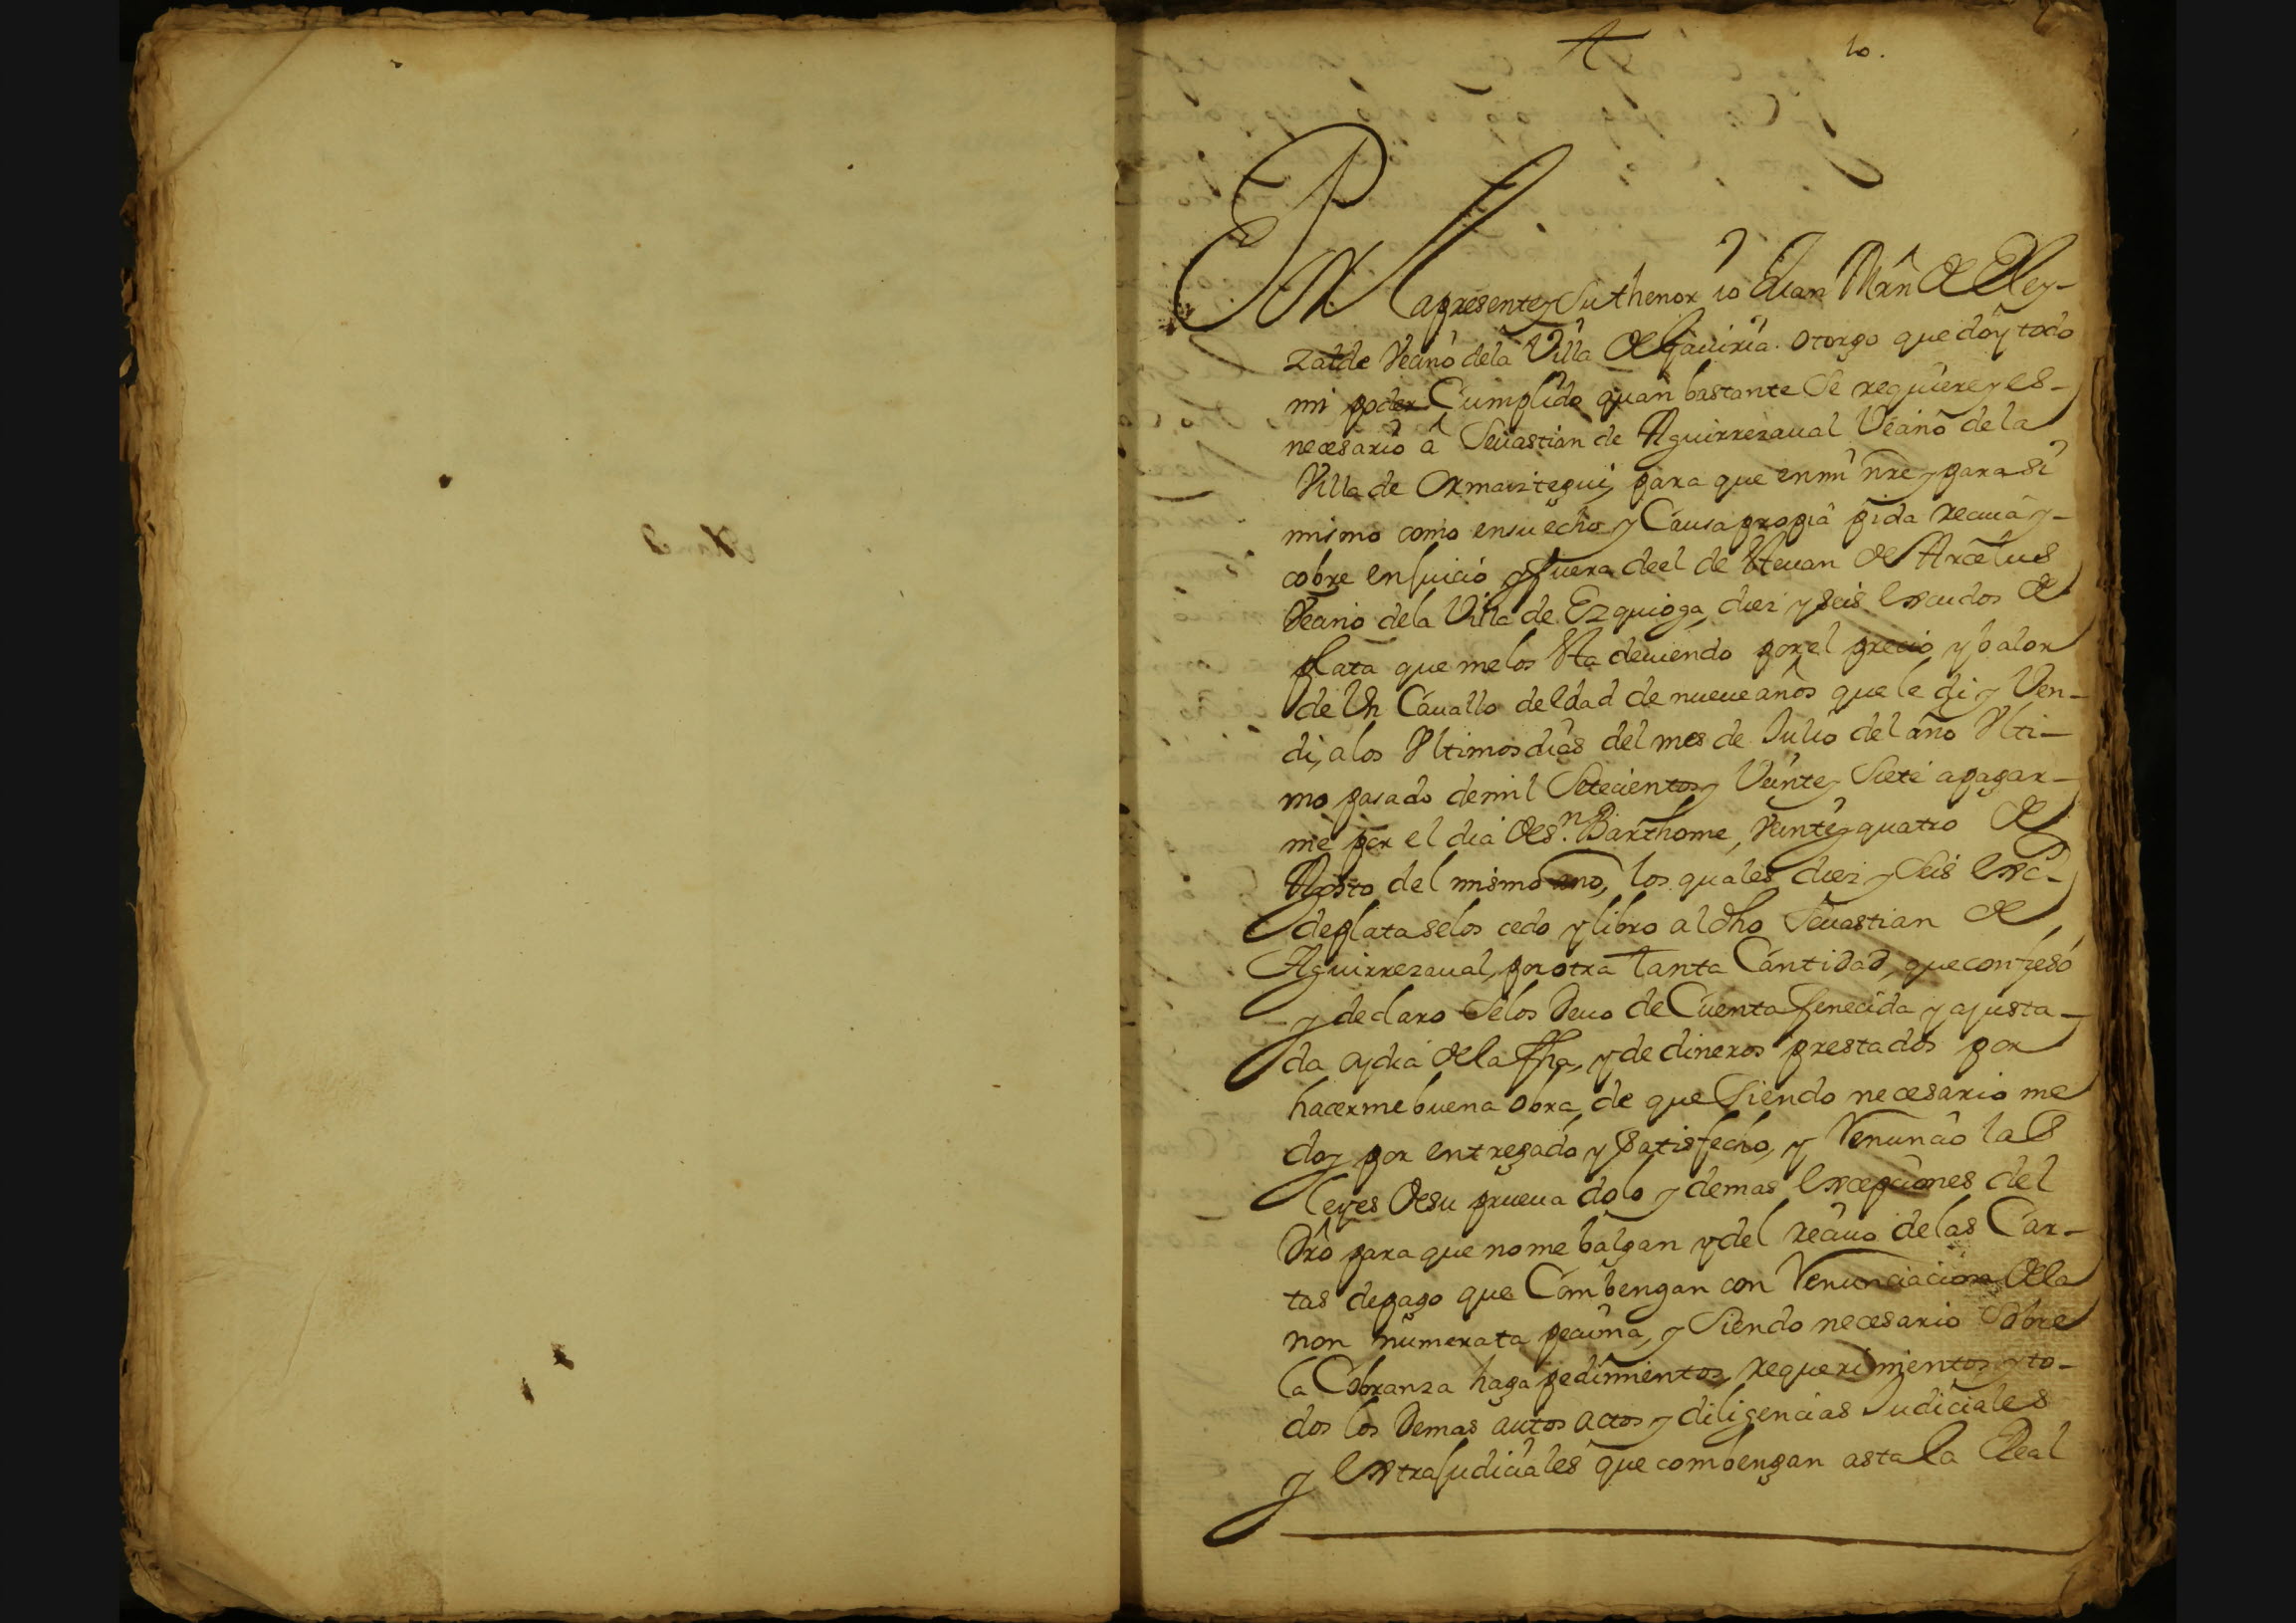 10.
En la presente y su thenor io Juan Mrn de Eley-
zalde Vecino dela Villa de Gaviria otorgo que doy todo
mi poder Cumplido quan bastante Se requiere y es-
necesario â Sevastian de Aguirrezaual Vecino de la
Villa de Ormaiztegui, para que en mi nre y para si
mismo como en su echo y Causa propia pida reciua y-
cobre en Juicio y fuera de el de Stevan de Arcelus
Vecino dela Villa de Ezquioga, diez y seis escudos de
plata que me los Sta deviendo por el precio y balor
de Vn Cauallo de edad de nueue años que le di y Ven-
di, a los Vltimos dias del mes de Julio del año Vlti-
mo pasado de mil Setecientos y Veinte y Siete a pagar-
me por el dia de Sn. Barthome, Veinte y quatro de
Agosto del mismo ano, los quales diez y Seis esc.
de plata se los cedo y libro al dho Sevastian de
Aguirrezaual, por otra tanta Cantidad, que confieso
y declaro Se los Devo de Cuenta fenecida y ajusta-
da oy dia de la fha, y de dineros prestados por
hacerme buena obra, de que Siendo necesario me
doy por entregado y Satisfecho, y Renuncio las
leyes de su prueua dolo y demas excepciones del
Dro para que no me balgan y del reciuo de las Car-
tas de pago que Combengan con Renunciacion de la
non numerata pecunia, y Siendo necesario Sobre
la Cobranza haga pedimientos, requerimientos y to-
dos los Demas autos actos y diligencias Judiciales
y extrajudiciales que combengan asta la Real